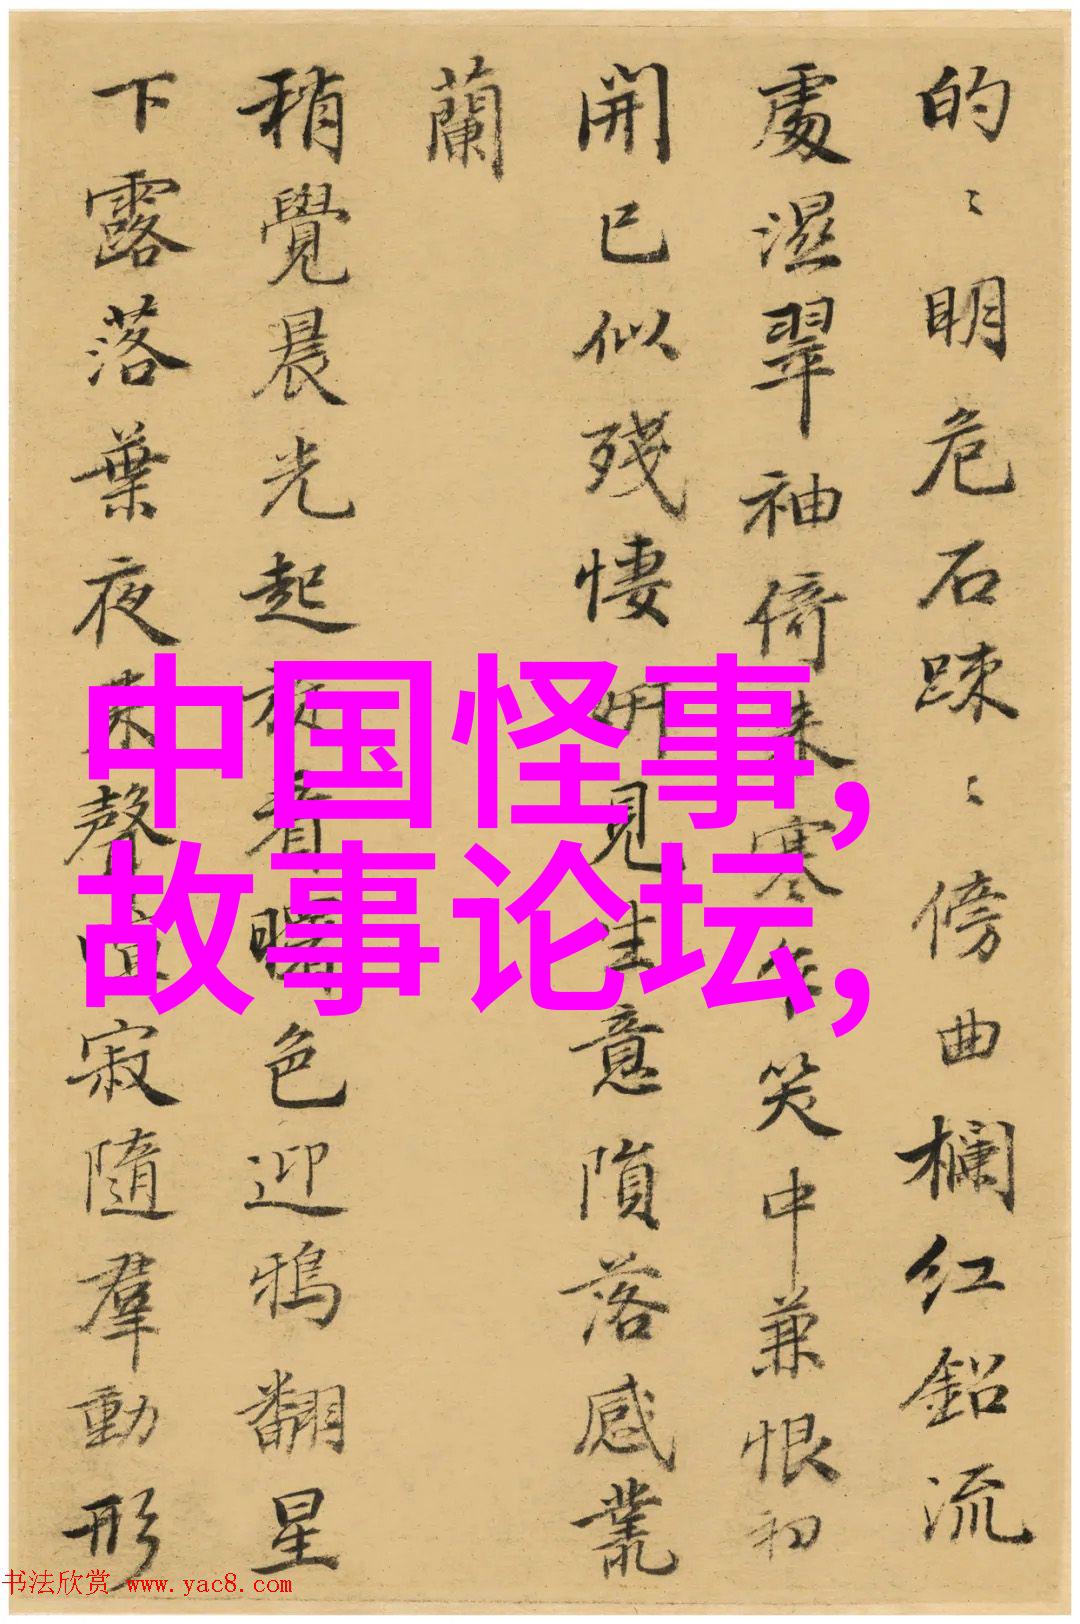 的〻明危石踈〻傍曲欄红鈆流
處濕翠袖倚来寒乍笑中兼恨初
開已似残悽妍見生意隕落感叢
蘭
稍覺晨光起看曙色迎鴉翻星
下露落葉夜来聲寂隨羣動形
中国怪事,
故事论坛,
书法欣赏 www.yac8.com